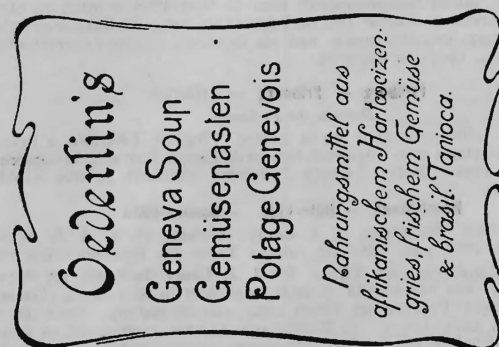 Oederlin's
Geneva Soup
Gemüsenasten
Potage Genevois
Nahrungsmittel aus
afrikanischem Hartweizen-
gries, frischem Gemüse
& brasil. Tapioca.